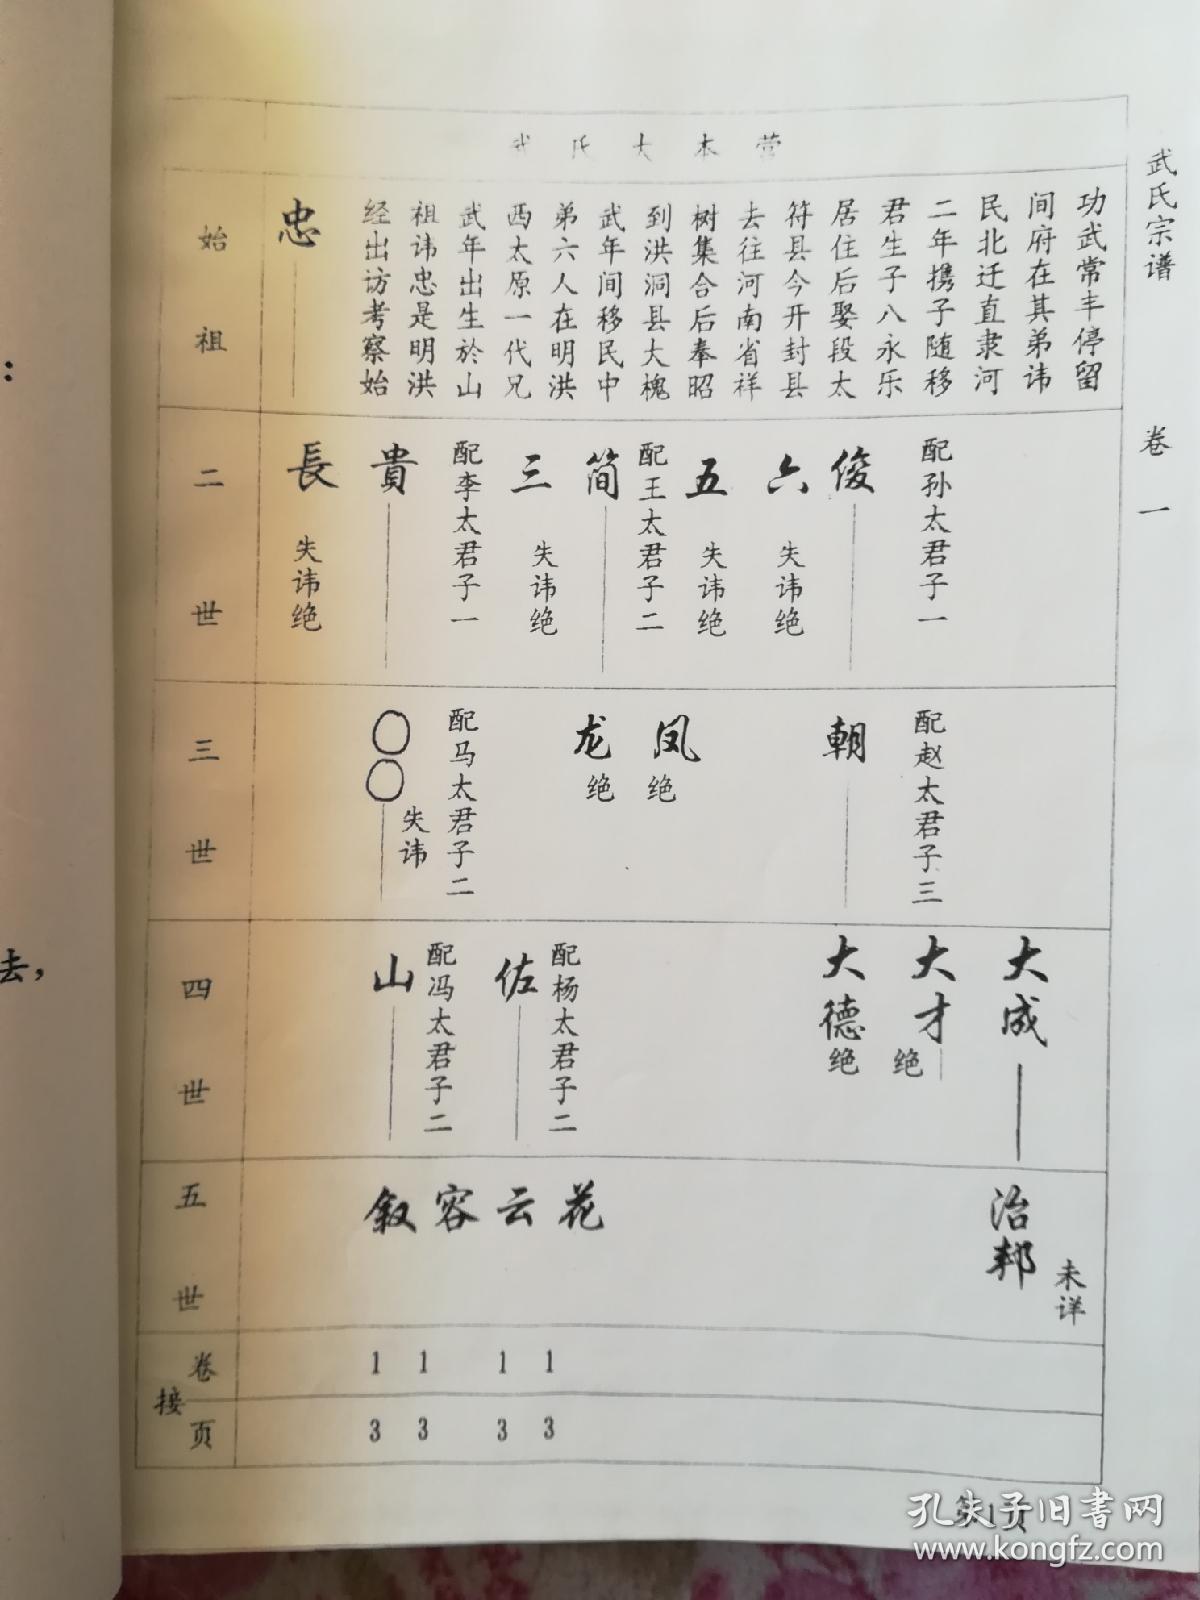 武氏宗谱 卷一
武氏大本营
始祖
忠
经出访考察始
祖讳忠是明洪
武年出生於山
西太原一代兄
弟六人在明洪
武年间移民中
到洪洞县大槐
树集合后奉昭
去往河南省祥
符县今开封县
居住后娶段太
君生子八永乐
二年携子随移
民北迁直隶河
间府在其弟讳
功武常丰停留
二世
長 失讳绝
貴
配李太君子一
三 失讳绝
简
配王太君子二
五 失讳绝
六 失讳绝
俊
配孙太君子一
三世
〇〇 失讳
配马太君子二
龙 绝
凤 绝
朝
配赵太君子三
四世
山
配冯太君子二
佐
配杨太君子二
大德 绝
大才 绝
大成
五世
叙
容
云
花
治邦 未详
接
卷 1 1 1 1
页 3 3 3 3
第1页
:
去，
孔夫子旧书网
www.kongfz.com